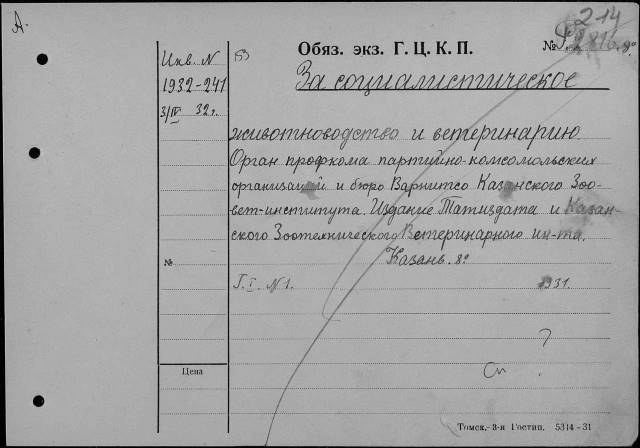 А.
Инв. N
1932-241
3/IV 32 г.
Обяз. экз. Г. Ц. К. П.
№
214
За социалистическое
животноводство и ветеринарию.
Орган профкома партийно-комсомольских
организаций и бюро Варнитсо Казанского Зоо-
вет-института. Издание Татиздата и Казан-
ского Зоотехнического Ветеринарного ин-та.
№
Казань. 8º
Г. I. N 1.
1931.
?
Цена
См.
Томск,-3-я Гостип. 5314-31